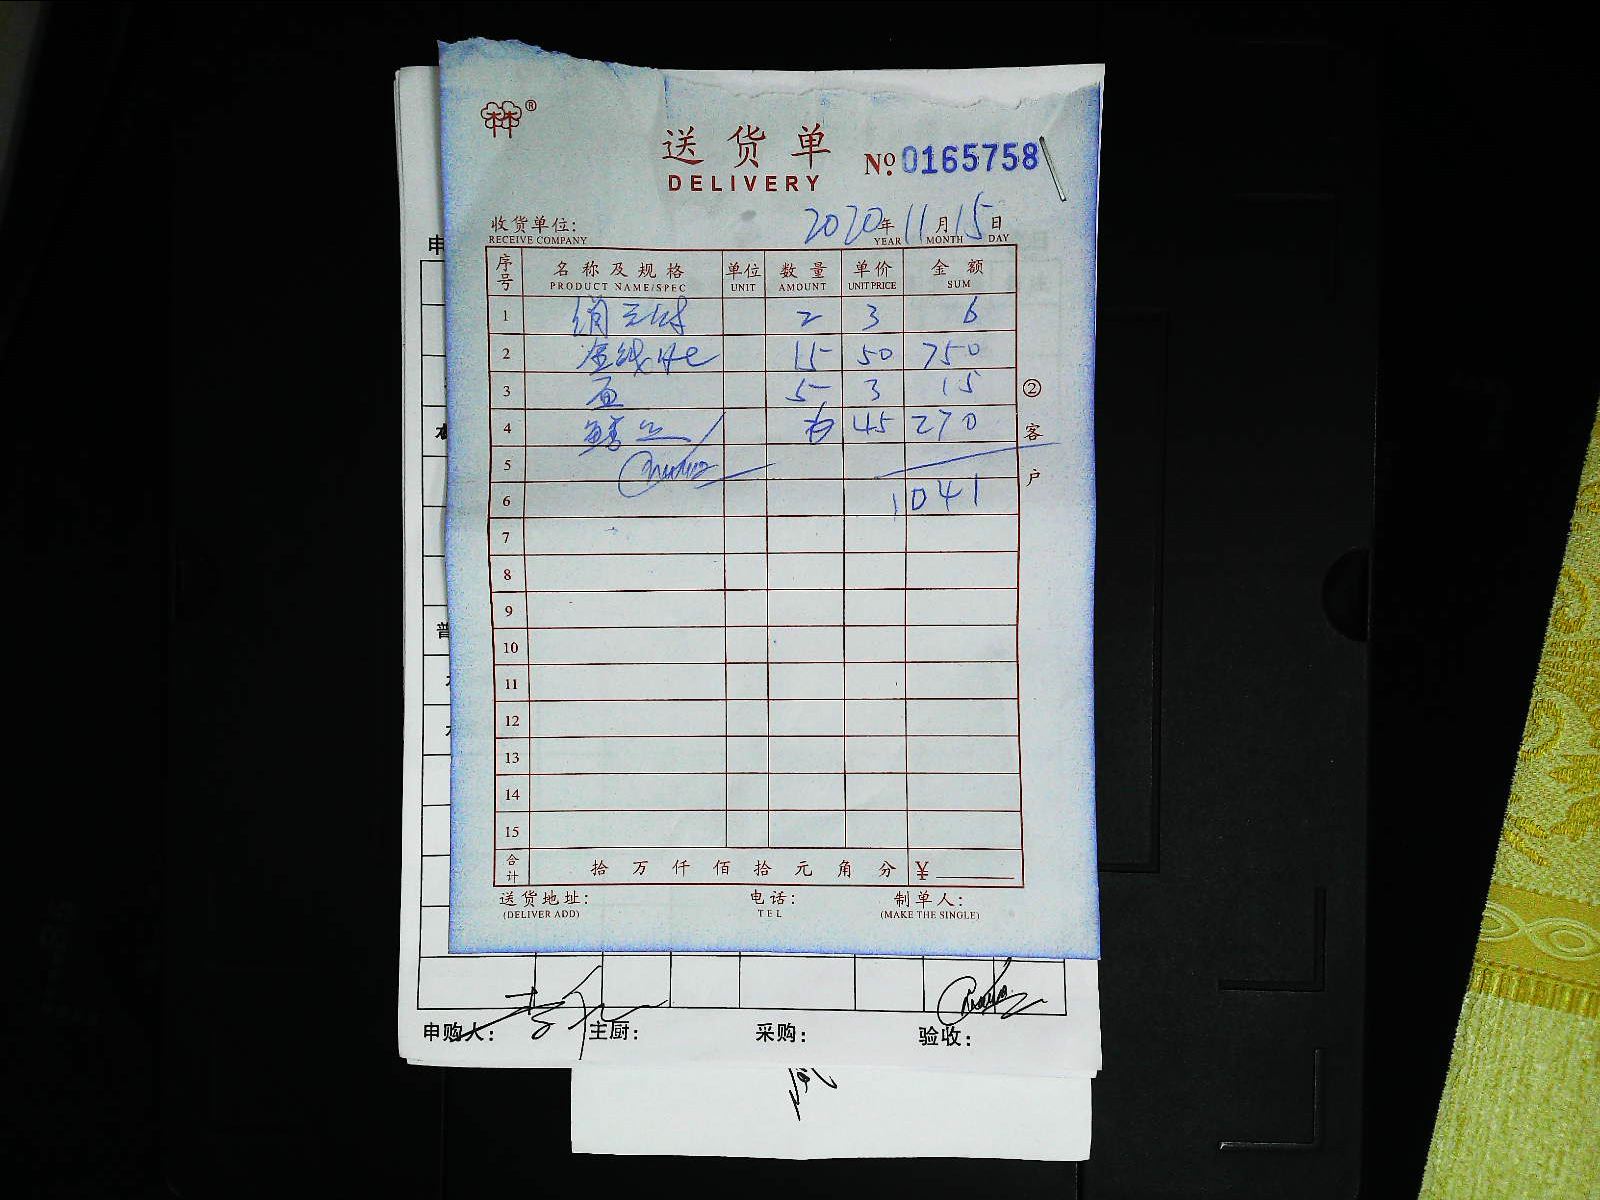 ®
送货单
DELIVERY
№ 0165758
收货单位: 2020年11月15日
RECEIVE COMPANY YEAR MONTH DAY
序号 名称及规格 单位 数量 单价 金额
PRODUCT NAME/SPEC UNIT AMOUNT UNIT PRICE SUM
1 2 3 6
2 15 50 750
3 5 3 15
4 45 270
5
6 1041
7
8
9
10
11
12
13
14
15
合计 拾 万 仟 佰 拾 元 角 分 ¥
送货地址: 电话: 制单人:
(DELIVER ADD) TEL (MAKE THE SINGLE)
② 客户
申
普
申购人: 主厨: 采购: 验收: